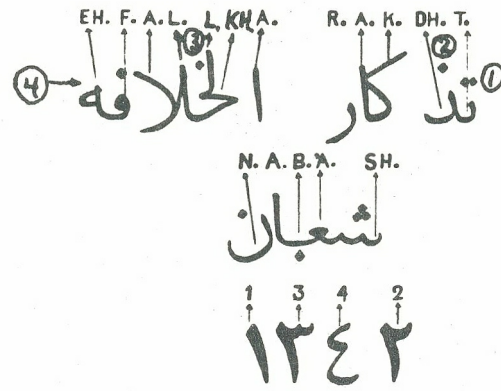 EH. F. A. L. L. KH. A. R. A. K. DH. T.
③ ② ①
④ تذكار الخلافه
N. A. B. 'A. SH.
شعبان
1 3 4 2
١٣٤٢